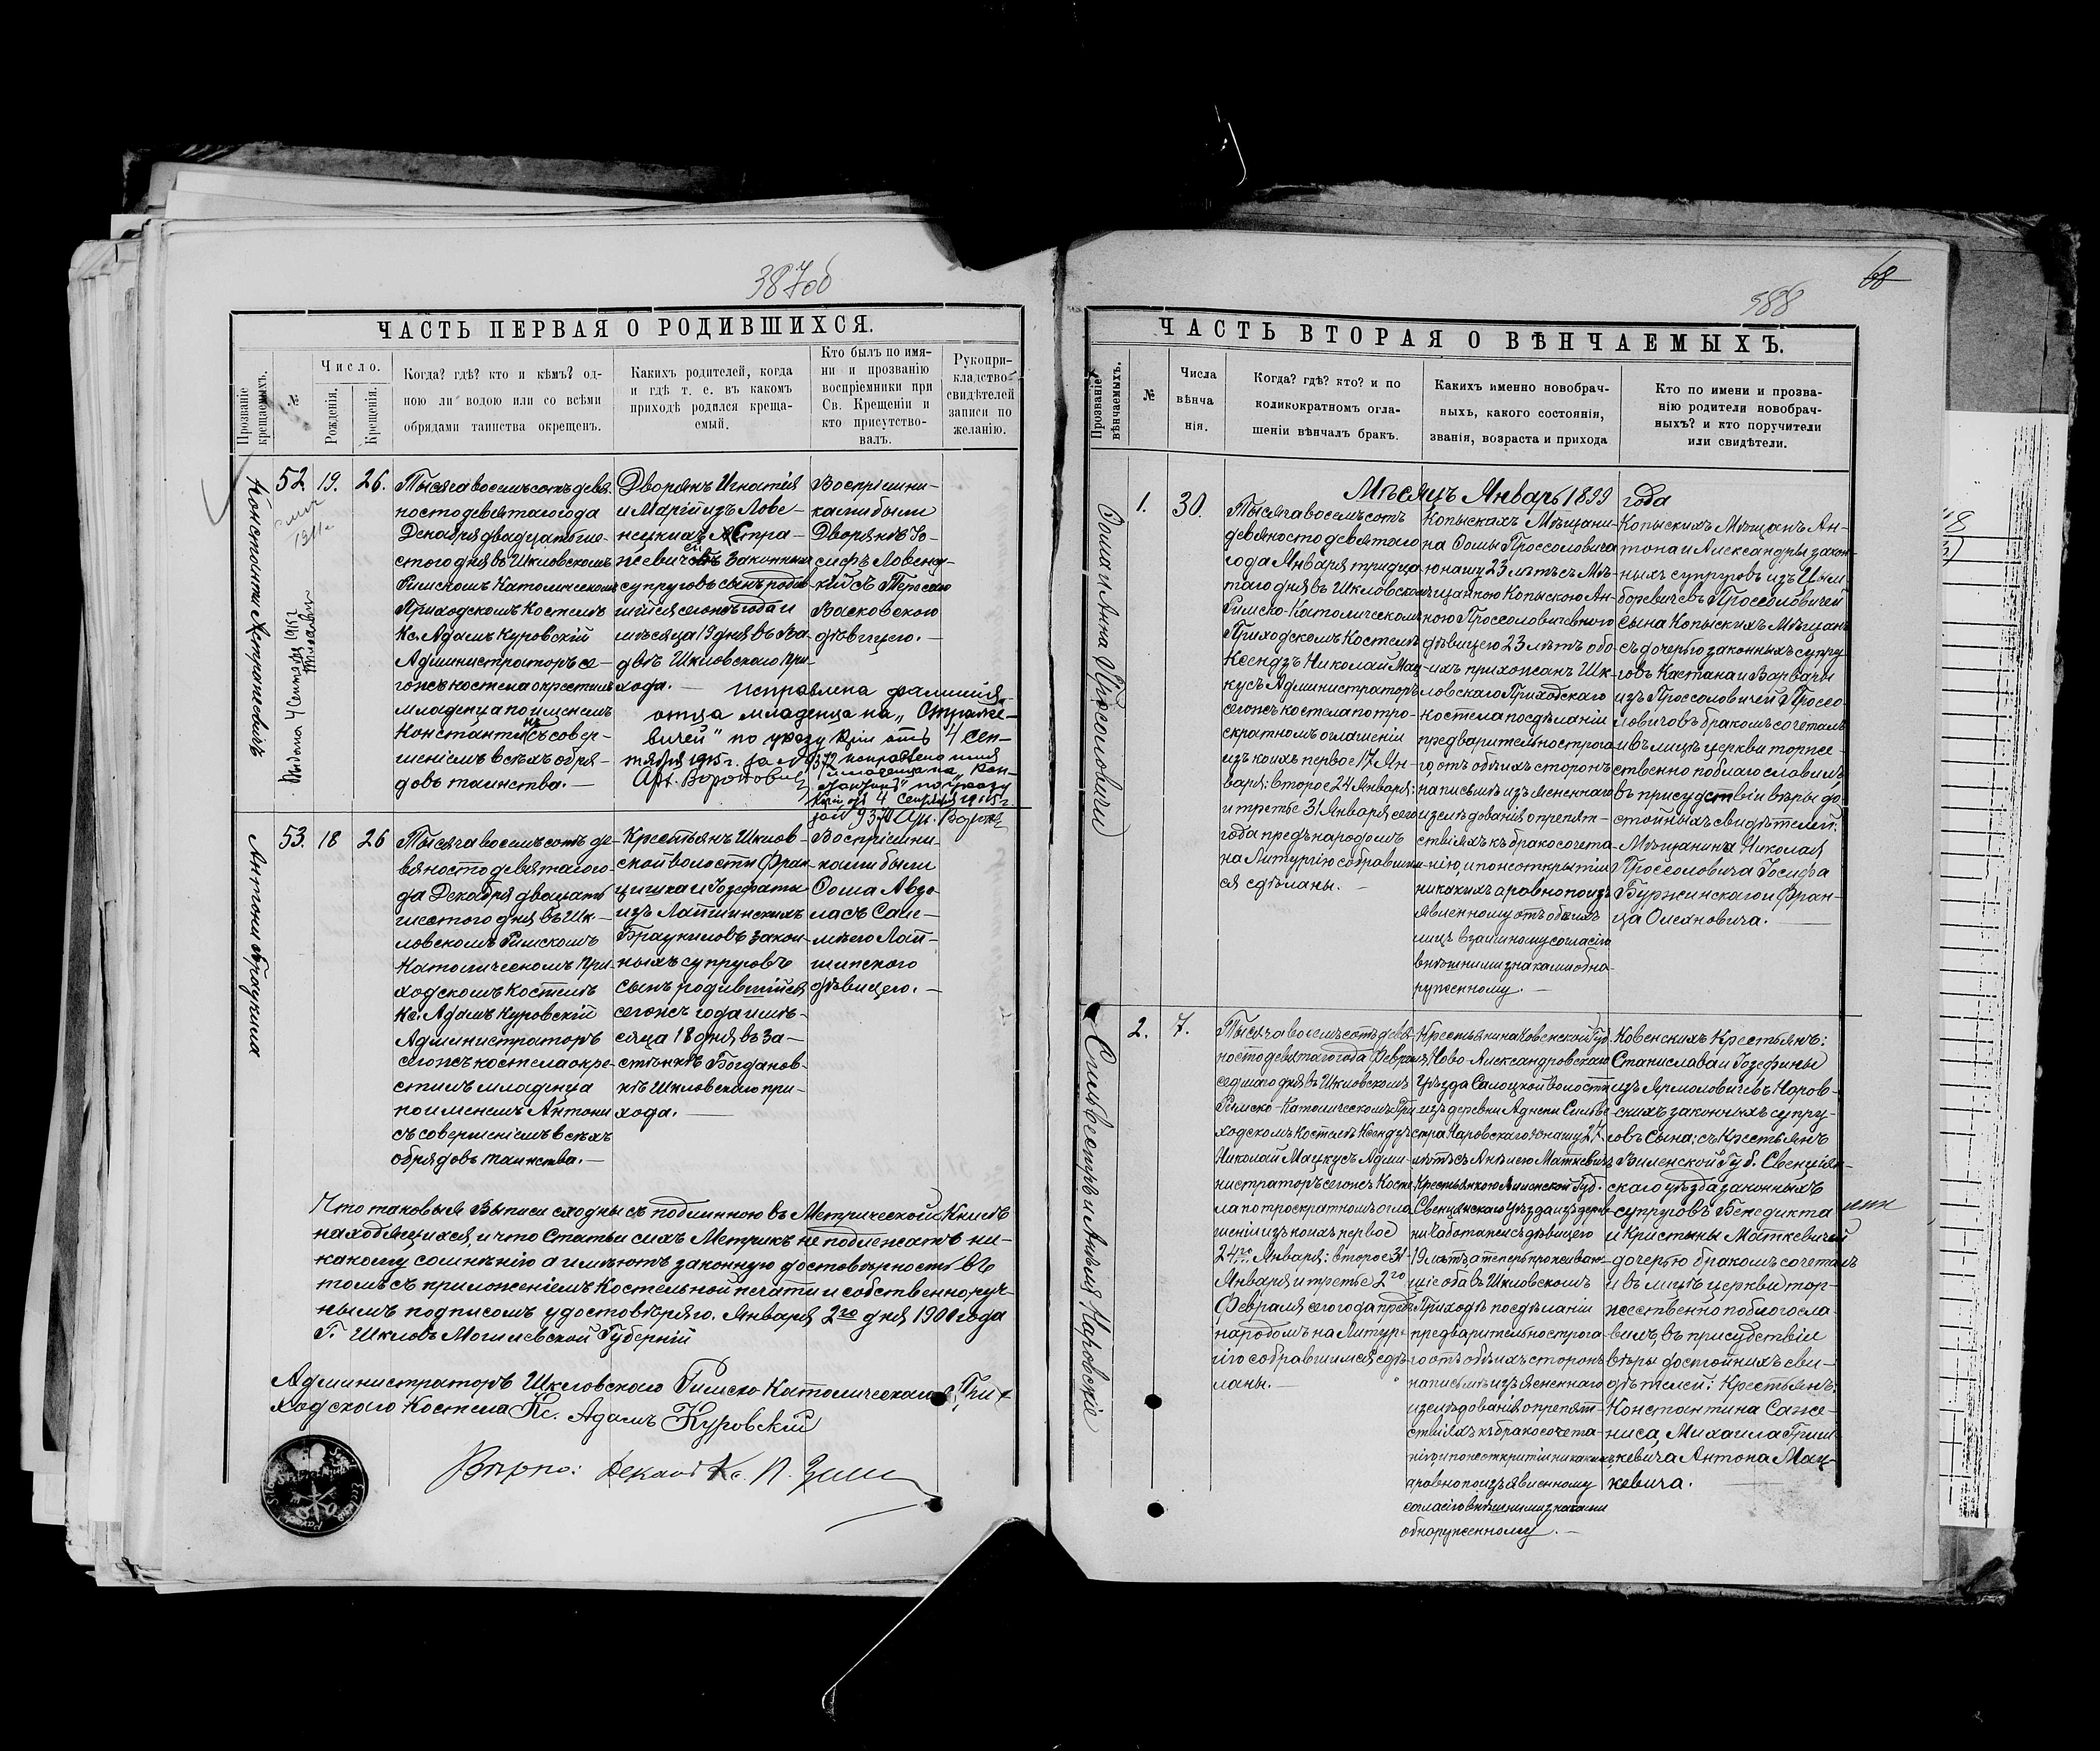 387об
ЧАСТЬ ПЕРВАЯ О РОДИВШИХСЯ.
Прозваніе крещаемыхъ.
№
Число.
Рожденія.
Крещенія.
Когда? гдѣ? кто и кѣмъ? од-
ною ли водою или со всѣми
обрядами таинства окрещенъ.
Какихъ родителей, когда
и гдѣ т. е. въ какомъ
приходѣ родился креща-
емый.
Кто былъ по имя-
ни и прозванію
воспріемники при
Св. Крещеніи и
кто присутство-
валъ.
Рукопри-
кладство
свидѣтелей
записи по
желанію.
52. 19. 26.
Выдана 4 Сентября 1915 г.
Тысяча восемьсотъ девя-
ностодевятаго года
Декабря двадцать ше-
стого дня въ Шкловскомъ
Римскомъ Католическомъ
Приходскомъ Костелѣ
Кс. Адамъ Куровскій
Администраторъ се-
гожъ костела окрестилъ
младенца по именемъ
Константинъ съ совер-
шеніемъ всѣхъ обря-
довъ таинства. —
Дворянъ Игнатія
и Маріи изъ Лове-
нецкихъ
законныхъ
супруговъ сынъ родив-
шійся сегожъ года и
мѣсяца 19 дня въ За-
дѣ Шкловскаго при-
хода. —
исправлена фамилія
отца младенца на „Страпке-
вичей" по указу Кріи отъ 4 Сен-
тября 1915 г. за № 9372 исправлено имя
младенца на „Кон-
по указу
Кріи отъ 4 Сентября 1915 г.
Воспріемни-
ками были
Дворянѣ Іо-
сифъ Ловенец-
кій съ Терезою
Васковского
дѣвицею. —
53. 18 26
Тысяча восемьсотъ де-
вяностодевятаго го-
да Декабря двадцать
шестого дня въ Шк-
ловскомъ Римскомъ
Католическомъ При-
ходскомъ Костелѣ
Кс. Адамъ Куровскій
Администраторъ
сегожъ костела окре-
стилъ младенца
по именемъ Антони
съ совершеніемъ всѣхъ
обрядовъ таинства. —
Крестьянъ Шклов-
ской волости Фран-
цишка и Іозефаты
изъ Лапшинскихъ
Браукиловъ закон-
ныхъ супруговъ
сынъ родившійся
сегожъ года и мѣ-
сяца 18 дня въ за-
стѣнкѣ Богданов-
кѣ Шкловскаго при-
хода. —
Воспріемни-
ками были
Ѳома Авдо-
ласъ Сало-
мѣею Лап-
шинского
дѣвицею. —
Антони Браукила
Что таковыя Выписи сходны съ подлинною въ Метрической Книгѣ
находящихся, и что Статьи сихъ Метрикъ не подлежатъ ни-
какому сомнѣнію а имѣютъ законную достовѣрность въ
томъ съ приложеніемъ Костельной печати и собственноруч-
нымъ подписомъ удостовѣряю. Января 2го дня 1900 года
Г. Шкловъ Могилевской Губерніи
Администраторъ Шкловскаго Римско Католическаго При-
ходского Костела Кс. Адамъ Куровскій
Вѣрно: Деканъ Кс.
68
588
ЧАСТЬ ВТОРАЯ О ВѢНЧАЕМЫХЪ.
Прозваніе вѣнчаемыхъ.
№
Числа
вѣнча
нія.
Когда? гдѣ? кто? и по
коликократномъ огла-
шеніи вѣнчалъ бракъ.
Какихъ именно новобрач-
ныхъ, какого состоянія,
званія, возраста и прихода
Кто по имени и прозва-
нію родители новобрач-
ныхъ? и кто поручители
или свидѣтели.
Мѣсяцъ Январь 1899 года
Ѳома и Анна Проссоловичи
1. 30.
Тысяча восемьсотъ
девяносто девятаго
года Января тридца-
таго дня въ Шкловскомъ
Римско-Католическомъ
Приходскомъ Костелѣ
Ксендзъ Николай Мац-
кусъ Администраторъ
сегожъ костела по тро-
скратномъ оглашеніи
изъ коихъ первое 17 Ян-
варя: второе 24 Января:
и третье 31 Января сего
года предъ народомъ
на Литургію собравшим-
ся сдѣланы. —
Копыскахъ Мѣщани-
на Ѳомы Проссоловича
юношу 23 лѣтъ съ Мѣ-
щанкою Копыскою Ан-
ною Проссоловичевного
дѣвицею 23 лѣтъ обо-
ихъ прихожанъ Шк-
ловскаго Приходскаго
костела по сдѣланіи
предварительно строга-
го, отъ обѣихъ сторонъ
на письмѣ изъясненнаго
изслѣдованія о препят-
ствіяхъ къ бракосочета-
нію, и по не открытіи
никакихъ а равно по изъ-
явленному отъ обѣихъ
лицъ взаимному согласію
внѣшними знаками обна-
руженному. —
Копыскихъ Мѣщанъ Ан-
тона и Александры закон-
ныхъ супруговъ изъ Цым-
боревичевъ Проссоловичей
сына Копыскихъ Мѣщанъ
съ дочерью законныхъ супру-
говъ Каетана и Варвары
изъ Проссоловичей Проссо-
ловичовъ бракомъ сочеталъ
и въ лицѣ церкви торже-
ственно поблагословилъ
въ присудствіи вѣры до-
стойныхъ свидѣтелей:
Мѣщанина Николая
Проссоловича Іосифа
Буржинскаго и Фран-
ца Олехновича. —
Сильвестръ и Анѣля Наровскіе
2. 7.
Тысяча восемьсотъ девя-
ностодевятаго года Февраля
седмаго дня въ Шкловскомъ
Римско-Католическомъ При-
ходскомъ Костелѣ Ксендзъ
Николай Мацкусъ Адми-
нистраторъ сегожъ Косте-
ла по троскратномъ огла-
шеніи изъ коихъ первое
24го Января: второе 31
Января и третье 2го
Февраля сего года предъ
народомъ на Литур-
гію собравшимся сдѣ-
ланы. —
Крестьянина Ковенской Губ.
Ново-Александровскаго
Уѣзда Салоцкой волости
изъ деревни Сильве-
стра Наровскаго Юношу 27
лѣтъ съ Анѣлею Маткевичъ
Крестьянкою Виленской Губ.
Свенцянскаго Уѣзда изъ дерев-
ни дѣвицею
19 лѣтъ, а теперь проживаю-
щіе оба въ Шкловскомъ
Приходѣ по сдѣланіи
предварительно строга-
го отъ обѣихъ сторонъ
на письмѣ изъясненнаго
изслѣдованія о препят-
ствіяхъ къ бракосочета-
нію, и по не открытіи никакихъ,
а равно по изъявленному
согласію внѣшними знаками
обнаруженному. —
Ковенскихъ Крестьянъ:
Станислава и Іозефины
изъ Ярмоловичевъ Наров-
скихъ законныхъ супру-
говъ Сына; съ Крестьянъ
Виленской Губ. Свенціян-
скаго уѣзда законныхъ
супруговъ Бенедикта
и Кристыны Маткевичей
дочерью бракомъ сочеталъ
и въ лицѣ церкви тор-
жественно поблогосла-
вилъ, въ присудствіи
вѣры достойнихъ сви-
дѣтелей: Крестьянъ:
Константина Саже-
ниса, Михаила Гриш-
кевича Антона Мац-
кевича. —